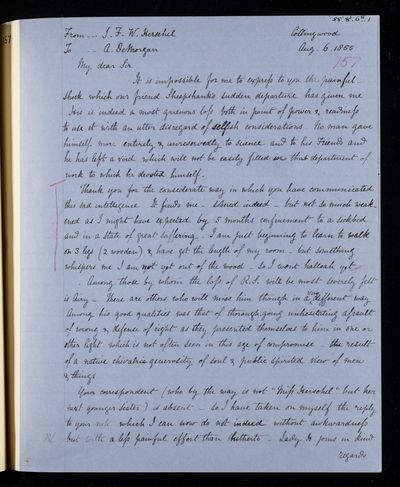 From -- J. F. W. Herschel Collingwood
To -- A. DeMorgan Aug. 6. 1855
157
My dear Sir
It is impossible for me to express to you the painful
shock which our friend Sheepshanks's sudden departure has given me
This is indeed a most grievous loss both in point of power & readiness
to use it with an utter disregard of selfish considerations. No man gave
himself more entirely & unreservedly to science and to his Friends and
he has left a void which will not be easily filled in that department of
work to which he devoted himself.
Thank you for the considerate way in which you have communicated
this sad intelligence. It finds me - indeed - but not so much weak
ened as I might have expected by 5 months confinement to a sickbed
and in a state of great suffering. I am just beginning to learn to walk
on 3 legs (2 wooden) & have got the length of my room - but something
whispers me I am not yet out of the wood - so I wont halloah yet
Among those by whom the loss of R.S. will be most severely felt
is Airy - There are others who will miss him though in a very different way
Among his good qualities was that of thorough going unhesitating assault
of wrong & defense of right as they presented themselves to him in one or
other light which is not often seen in this age of compromise - the result
of a native chivalric generosity of soul & public spirited view of men
& things
Your correspondent (who by the way is not "Miss Herschel" but her
next younger sister) is absent - so I have taken on myself the reply
to your note which I can now do not indeed without awkwardness
but with a less painful effort than hitherto. Lady H joins in kind
regards